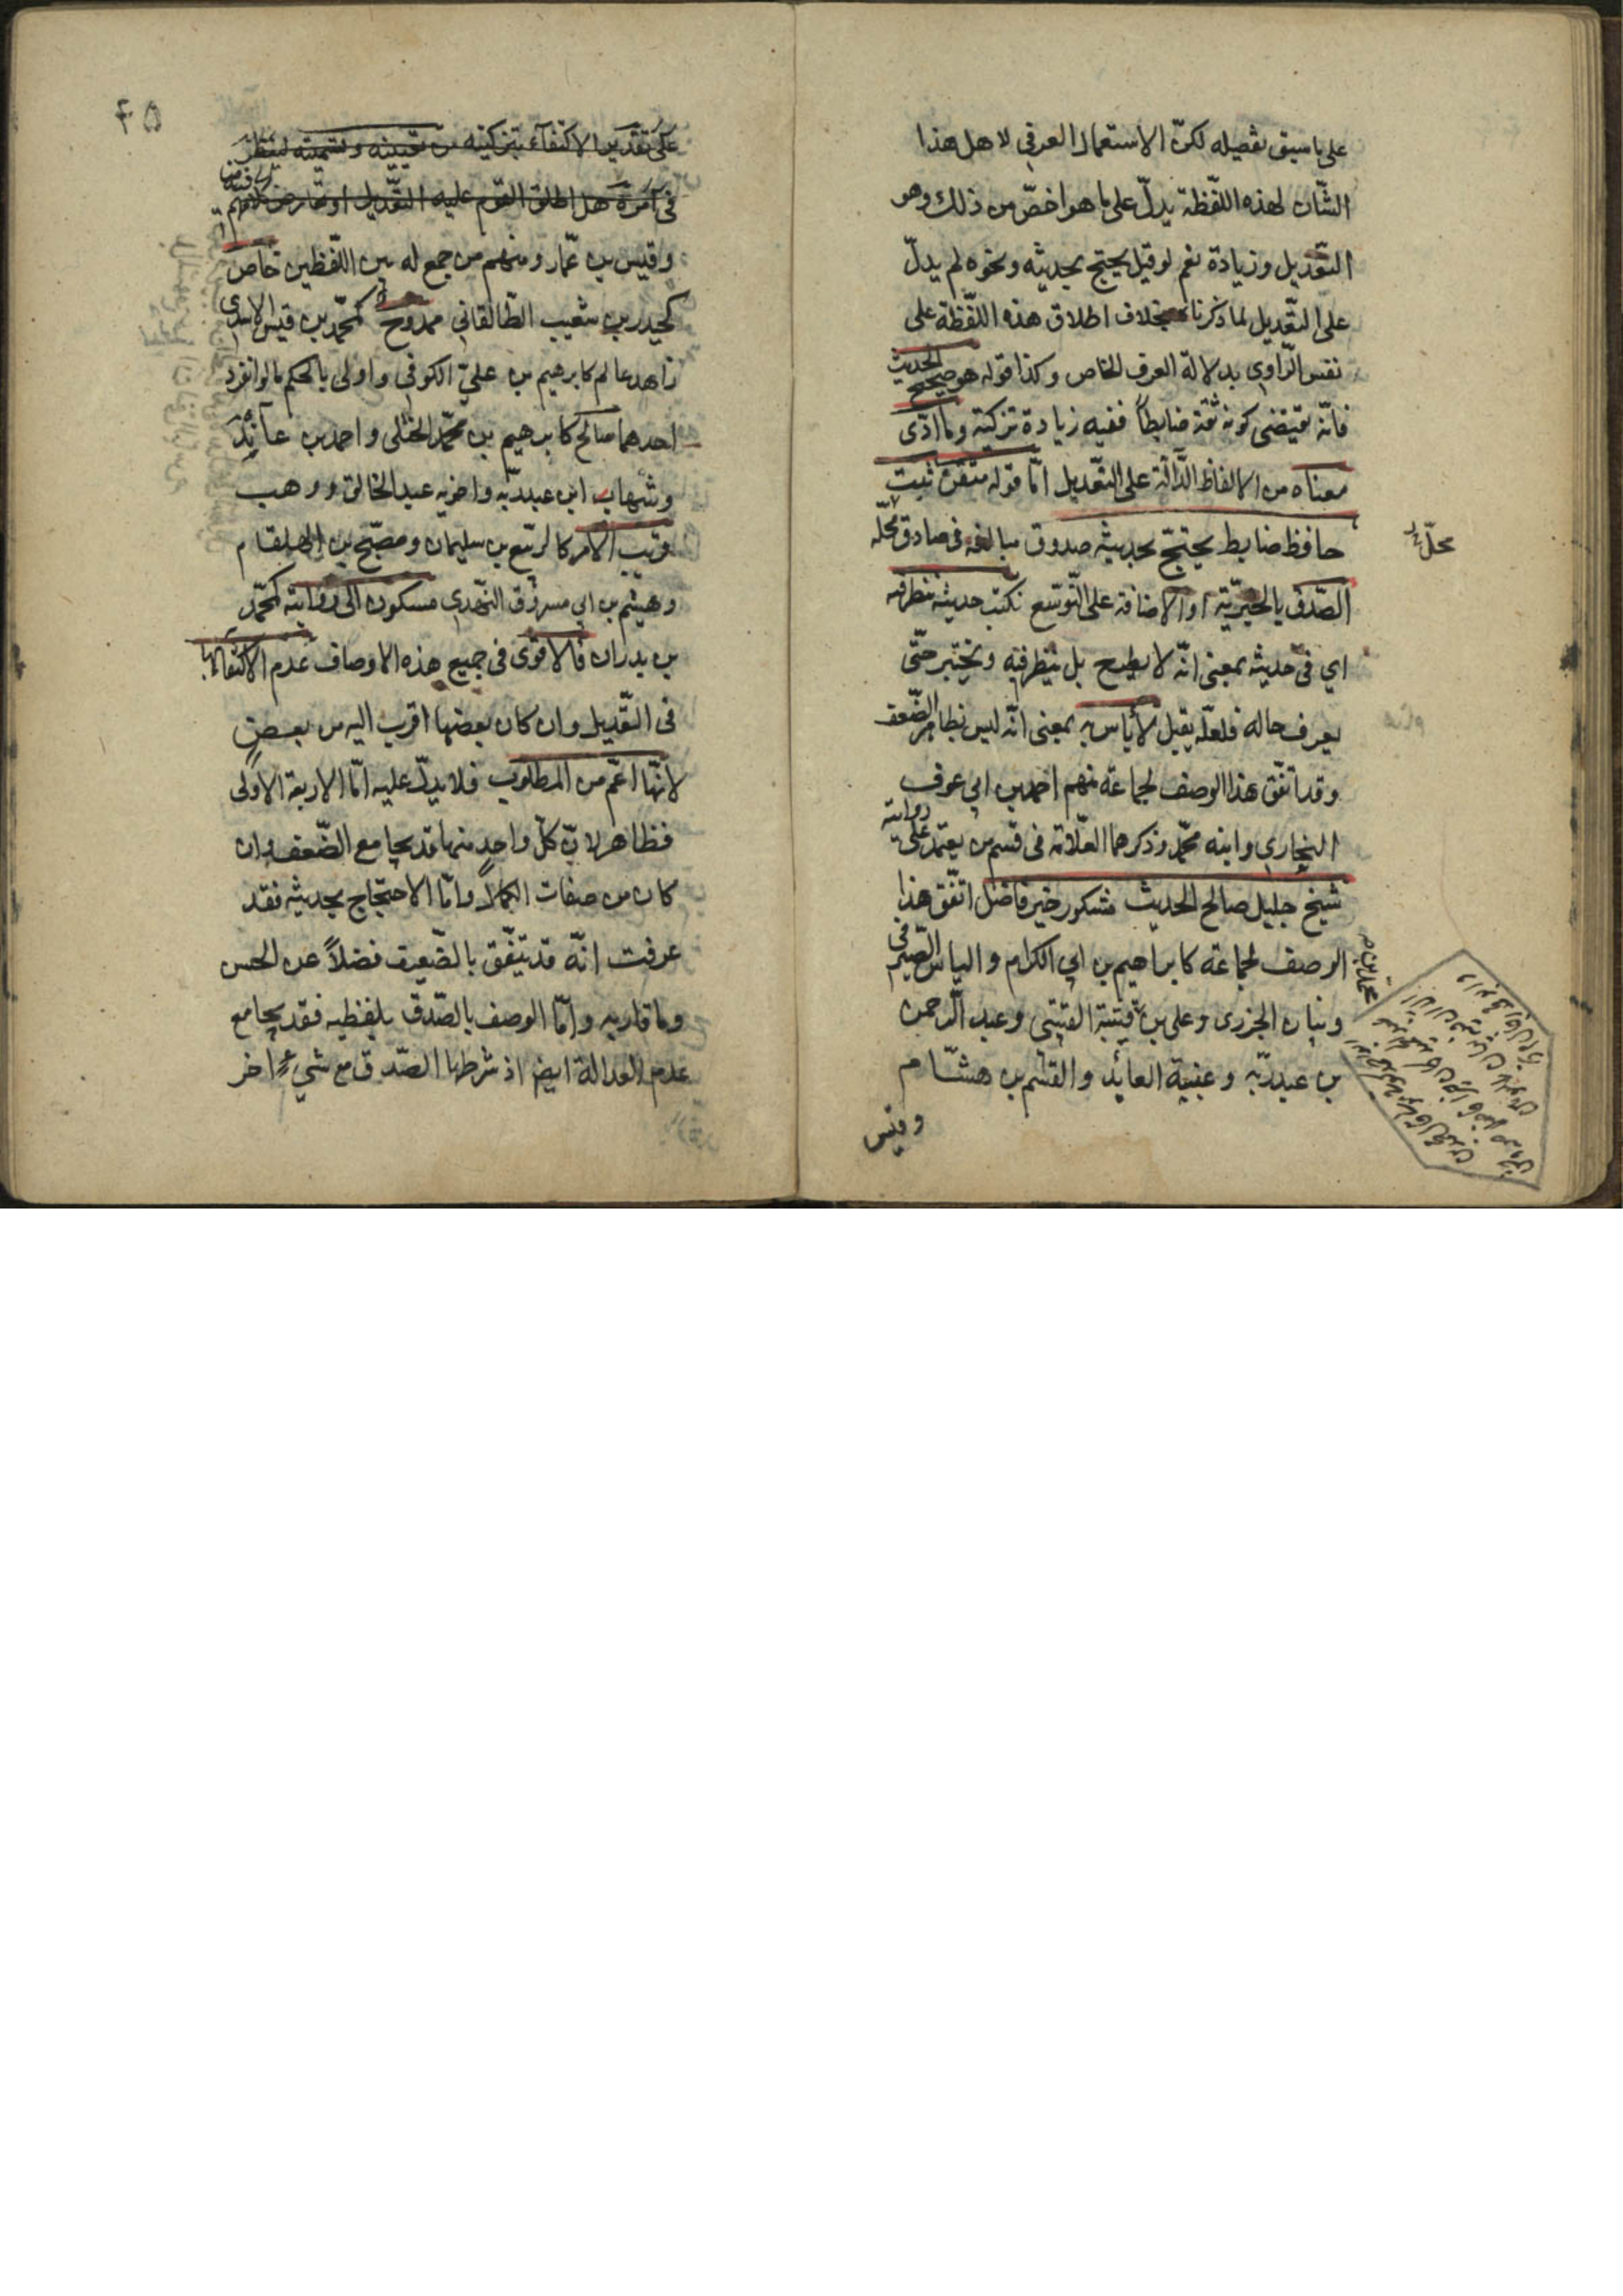 على ما سبق تفصيله لكنّ الاستعمال العرفي لاهل هذا
الشّان لهذه اللّفظة يدلّ على ما هو اخصّ من ذلك وهو
التعّديل وزيادة نعم لو قيل يحتج بحديثه ونحوه لم يدلّ
على التعّديل لما ذكرناه بخلاف اطلاق هذه اللّفظة على
نفس الرّاوي بدلالة العرف الخاص وكذا قوله هو صحيح الحديث
فانّه يقتضى كونه ثقة ضابطاً ففيه زيادة تزكية وما ادّى
معناه من الالفاظ الدّالّة على التعّديل امّا قوله متقن ثبت
حافظ ضابط يحتجّ بحديثه صدوق مبالغه فى صادق محلّه
محلّ
الصّدق بالخبريّة او الاضافة على التّوسّع نكتب حديثه ننظر فيه
اي فى حديثه بمعنى انّه لا يطرح بل ينظر فيه ويختبر حتّى
يعرف حاله فلعلّه يقبل لا بأس به بمعنى انّه ليس بظاهر الضّعف
وقد اتّفق هذا الوصف لجماعة منهم احمد بن ابي عوف
البخاري وابنه محمّد وذكرهما العلّامة فى قسم من يعتمد على روايته
شيخ جليل صالح الحديث مشكور خيّر فاضل اتّفق هذا
الوصف لجماعة كابراهيم بن ابي الكرام والياس الصّيرفى
وبنان الجزرى وعلي بن محمّد بن قتيبة القتيبى وعبد الرّحمن
بن عبدربّه وعنبة العائذ والقسّم بن هشّام
وقيس
٤٥
على تقدير الاكتفآء بتزكيته من تعيينه وتسميته لينظر
فى امره هل اطلق القوم عليه التعّديل او تعارض كلامهم فيه
وقيس بن عمّار ومنهم من جمع له بين اللّفظين خاصّ
كحيدر بن شعيب الطّالقاني ممدوح كمحمّد بن قيس الاسدى
زاهد عالم كابرهيم بن عليّ الكوفي واولى بالحكم ما لو انفرد
احدهما صالح كابرهيم بن محمّد الختلى واحمد بن عائذ
وشهاب ابن عبدربّه واخويه عبد الخالق ووهب
قريب الامر كالرّبيع بن سليمان ومصبّح بن الهلقام
وهيثم بن ابي مسروق النهّدي مسكون الى روايته كمحمّد
بن بدران فالاقوى فى جميع هذه الاوصاف عدم الاكتفآء بها
فى التعّديل وان كان بعضها اقرب اليه من بعض
لانّها اعمّ من المطلوب فلا يدلّ عليه امّا الاربعة الاولى
فظاهر لانّ كلّ واحدٍ منها قد يجامع الضّعف وان
كان من صفات الكمال وامّا الاحتجاج بحديثه فقد
عرفت انّه قد يتّفق بالضّعيف فضلاً عن الحسن
وما قاربه وامّا الوصف بالصّدق بلفظيه فقد يجامع
عدم العدالة ايضا اذ شرطها الصّدق مع شيء اخر